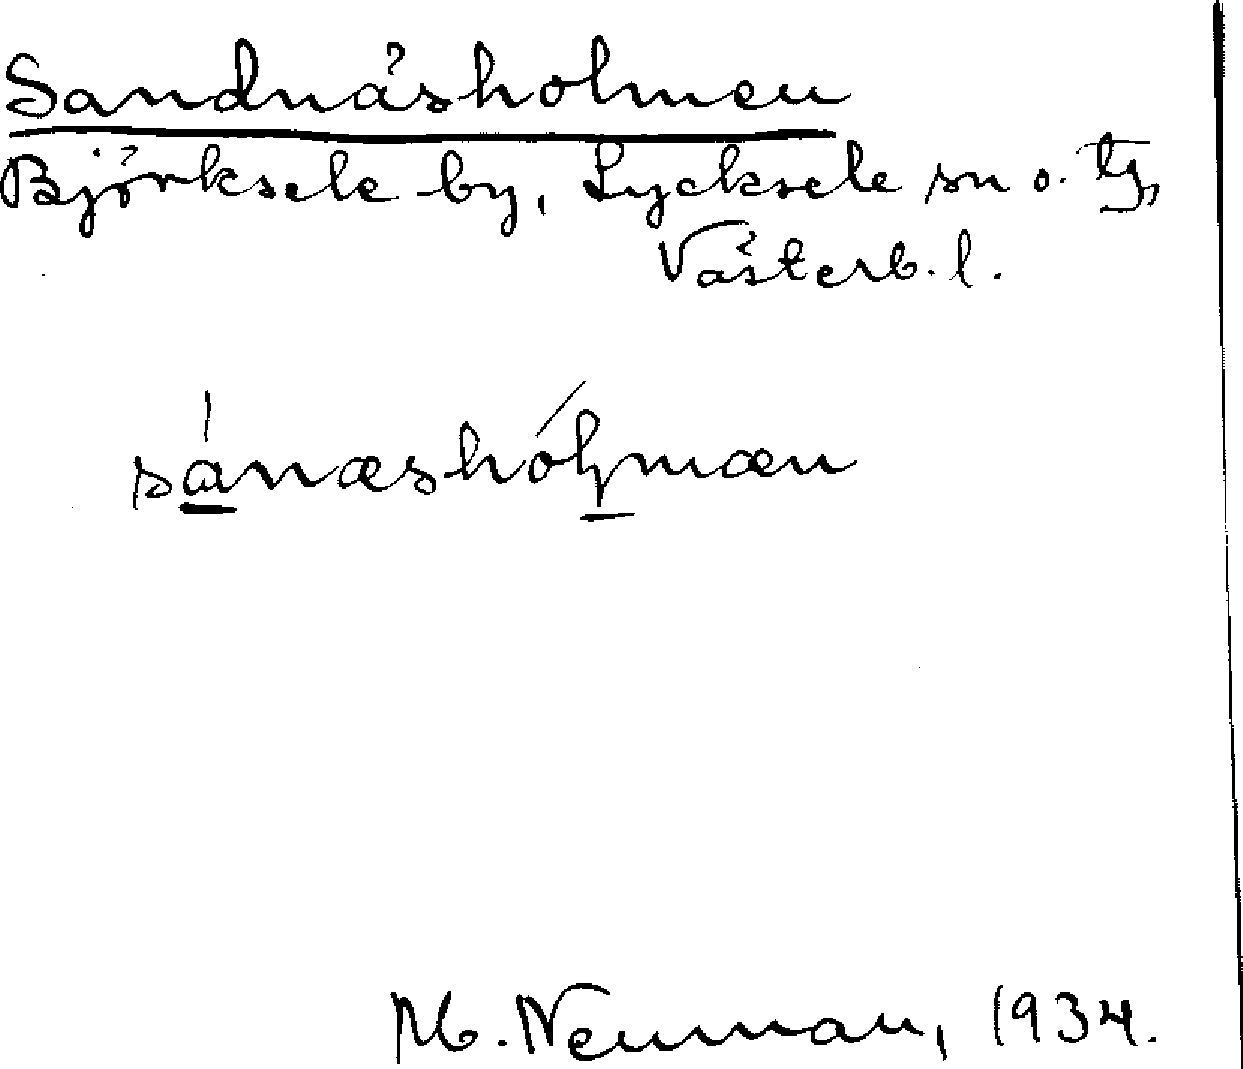 Sandnäsholmen
Björksele by, Lycksele sn o. tg,
Västerb. l.
sánæshóɭmæn
M. Neuman, 1934.